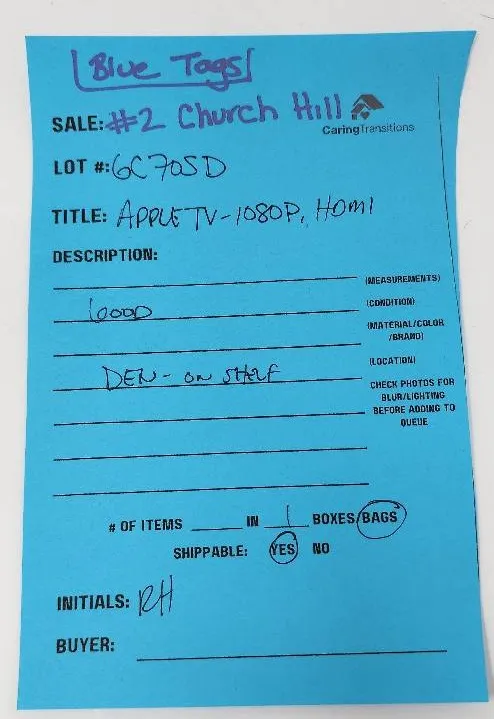 Blue Tags
SALE: #2 Church Hill
CaringTransitions
LOT #: 6C70SD
TITLE: APPLE TV - 1080P, HDMI
DESCRIPTION:
(MEASUREMENTS)
GOOD (CONDITION)
(MATERIAL/COLOR
/BRAND)
(LOCATION)
DEN - ON SHELF
CHECK PHOTOS FOR
BLUR/LIGHTING
BEFORE ADDING TO
QUEUE
# OF ITEMS ____ IN 1 BOXES/BAGS
SHIPPABLE: YES NO
INITIALS: RH
BUYER: